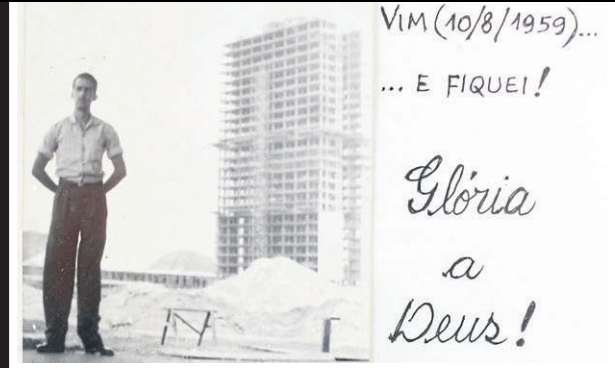 VIM (10/8/1959)...
... E FIQUEI!
Glória
a
Deus!